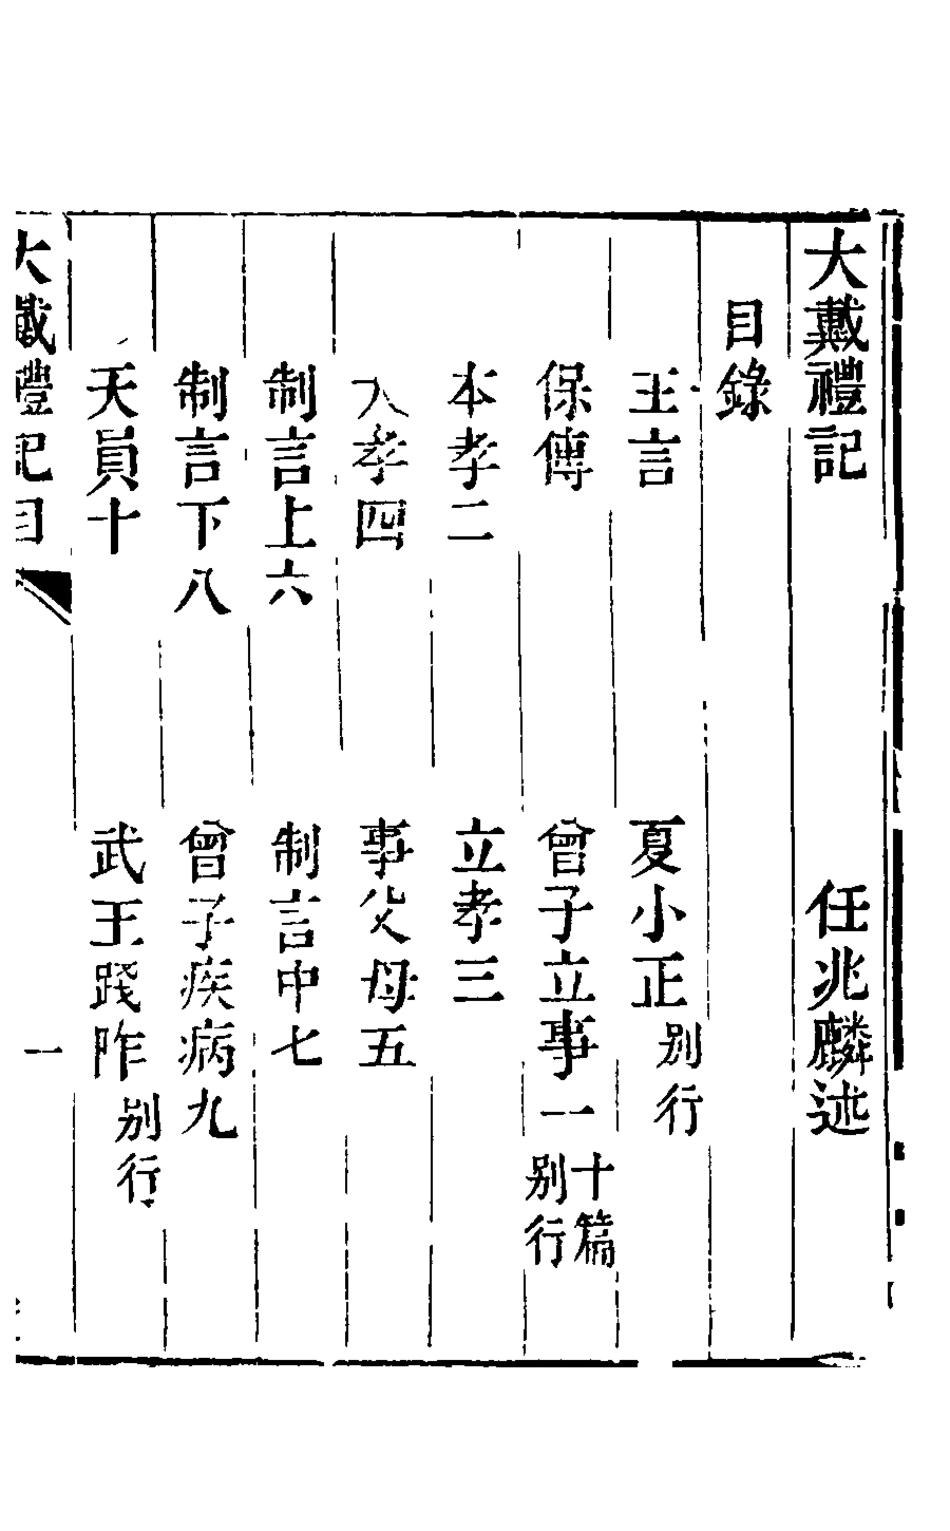 大戴禮記　任兆麟述
目錄
王言　夏小正別行
保傅　曾子立事一十篇別行
本孝二　立孝三
大孝四　事父母五
制言上六　制言中七
制言下八　曾子疾病九
天員十　武王踐阼別行
大戴禮記目　一